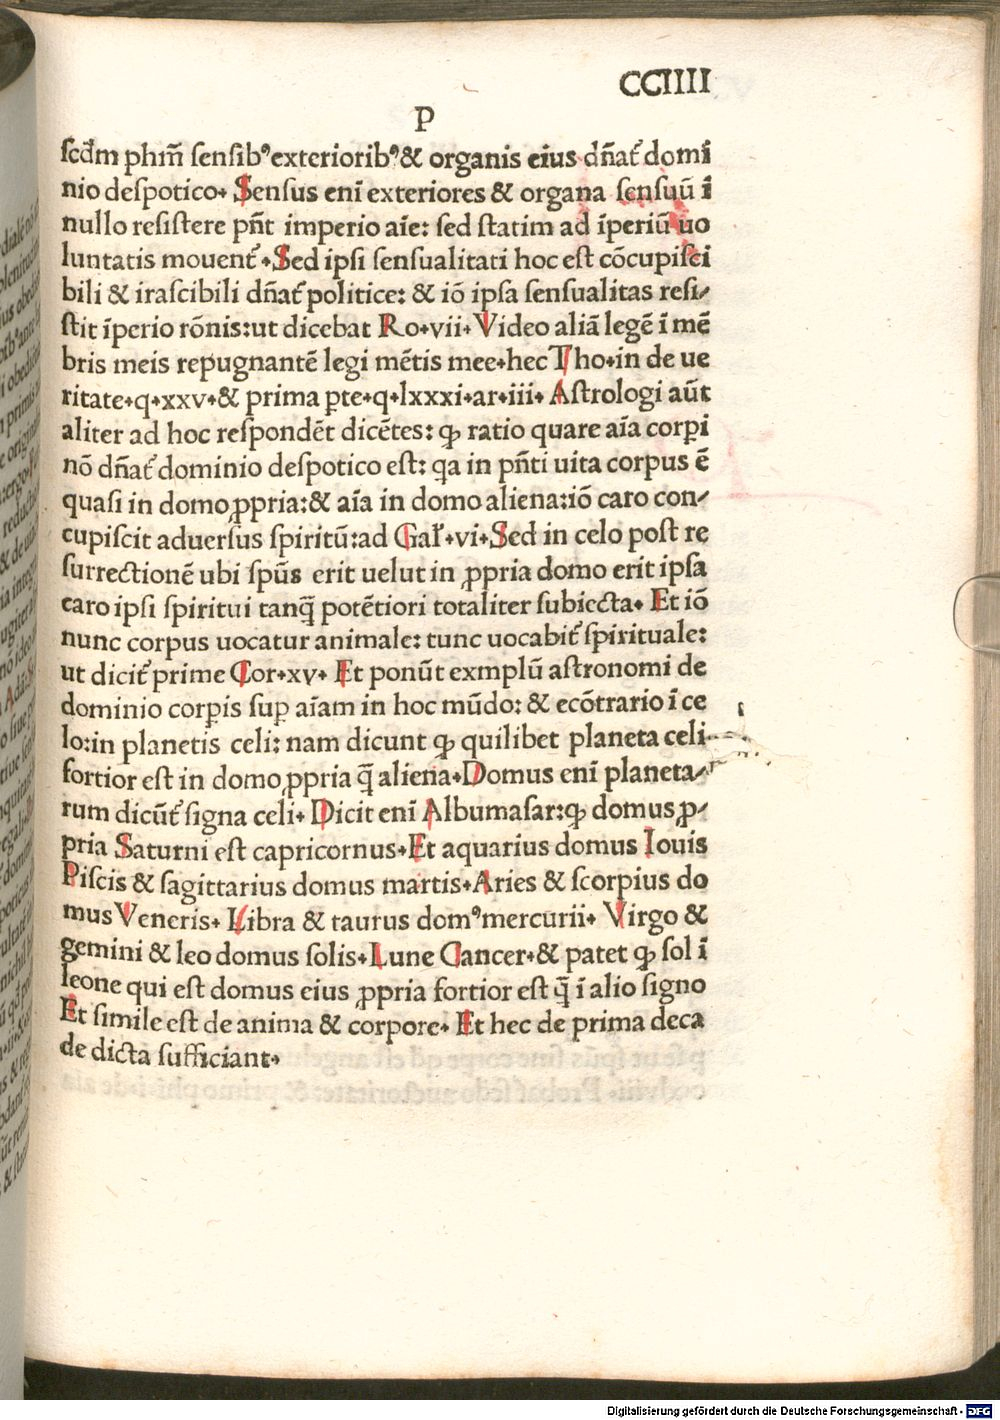 CCIIII
P
ſcd̄m phm̄ ſenſibꝰ exterioribꝰ & organis eius dn̄at᷑ domi
nio deſpotico. Senſus enī exteriores & organa ſenſuū ī
nullo reſiſtere pn̄t imperio aīe: ſed ſtatim ad īperiū uo
luntatis mouent᷑. Sed ipſi ſenſualitati hoc eſt cōcupiſci
bili & iraſcibili dn̄at᷑ politice: & iō ipſa ſenſualitas reſi⸗
ſtit īperio rōnis: ut dicebat Ro. vii. Video aliā legē ī mē
bris meis repugnantē legi mētis mee. hec Tho. in de ue
ritate. q. xxv. & prima ꝑte. q. lxxxi. ar. iii. Aſtrologi aūt
aliter ad hoc reſpondēt dicētes: ꝙ ratio quare aīa corpi
nō dn̄at᷑ dominio deſpotico eſt: qa in pn̄ti uita corpus ē
quaſi in domo ꝓpria: & aīa in domo aliena: iō caro con⸗
cupiſcit aduerſus ſpiritū: ad Gal᷑. vi. Sed in celo poſt re
ſurrectionē ubi ſpūs erit uelut in ꝓpria domo erit ipſa
caro ipſi ſpiritui tanq̄ potētiori totaliter ſubiecta. Et iō
nunc corpus uocatur animale: tunc uocabit᷑ ſpirituale:
ut dicit᷑ prime Cor. xv. Et ponūt exmplū aſtronomi de
dominio corpis ſup aīam in hoc mūdo: & ecōtrario ī ce
lo: in planetis celi: nam dicunt ꝙ quilibet planeta celi
fortior eſt in domo ꝓpria q̄ aliena. Domus enī planeta⸗
rum dicūt᷑ ſigna celi. Dicit enī Albumaſar: ꝙ domus ꝓ⸗
pria Saturni eſt capricornus. Et aquarius domus Iouis
Piſcis & ſagittarius domus martis. Aries & ſcorpius do
mus Veneris. Libra & taurus domꝰ mercurii. Virgo &
gemini & leo domus ſolis. Lune Cancer. & patet ꝙ ſol ī
leone qui eſt domus eius ꝓpria fortior eſt q̄ ī alio ſigno
Et ſimile eſt de anima & corpore. Et hec de prima deca
de dicta ſufficiant.
Digitalisierung gefördert durch die Deutsche Forschungsgemeinschaft - DFG